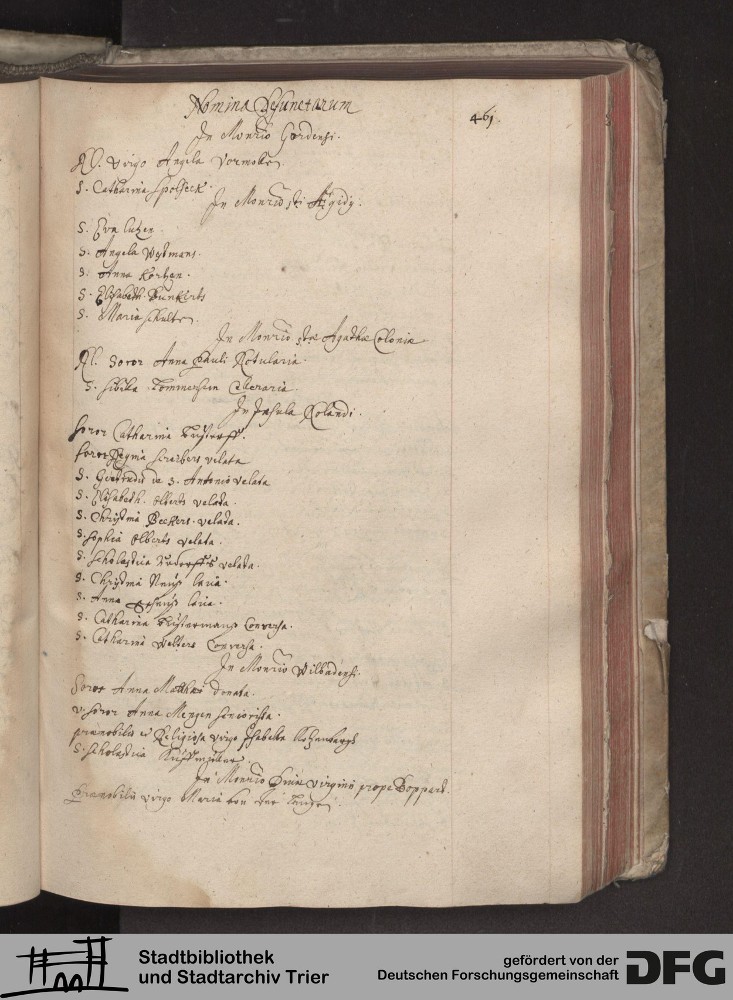 Nomina Defunctarum
461.
In Monrio Gordensi.
Rl. Virgo Angela
S. Catharina Spolseck.
In Monrio sti Ægidij.
S. Eva Lutzen.
S. Angela Westmans.
S. Anna Kortzen.
S. Elisabeth Bunkirts
S. Maria Schulten.
In Monrio stæ Agathæ Coloniæ
Rl. Soror Anna Pauli Rotularia.
S. Sibilla Celleraria.
In Insula Rolandi.
Soror Catharina
Soror Regina Screibers velata
S. Gertrudis de S. Antonio velata
S. Elisabeth Olberts velata.
S. Christina Beckers velata.
S. Sophia Olberts velata.
S. Scholastica velata.
S. Christina Neuss laica.
S. Anna laica.
S. Catharina Conversa.
S. Catharina Welters Conversa.
In Monrio Wilbadensi.
Soror Anna Matthæi Donata.
V. Soror Anna Mengen
Prænobilis et Religiosa virgo Isabella
S. Scholastica
In Monrio Divæ Virginis prope Boppard.
Prænobilis virgo Maria von der
Stadtbibliothek
und Stadtarchiv Trier
gefördert von der
Deutschen Forschungsgemeinschaft
DFG